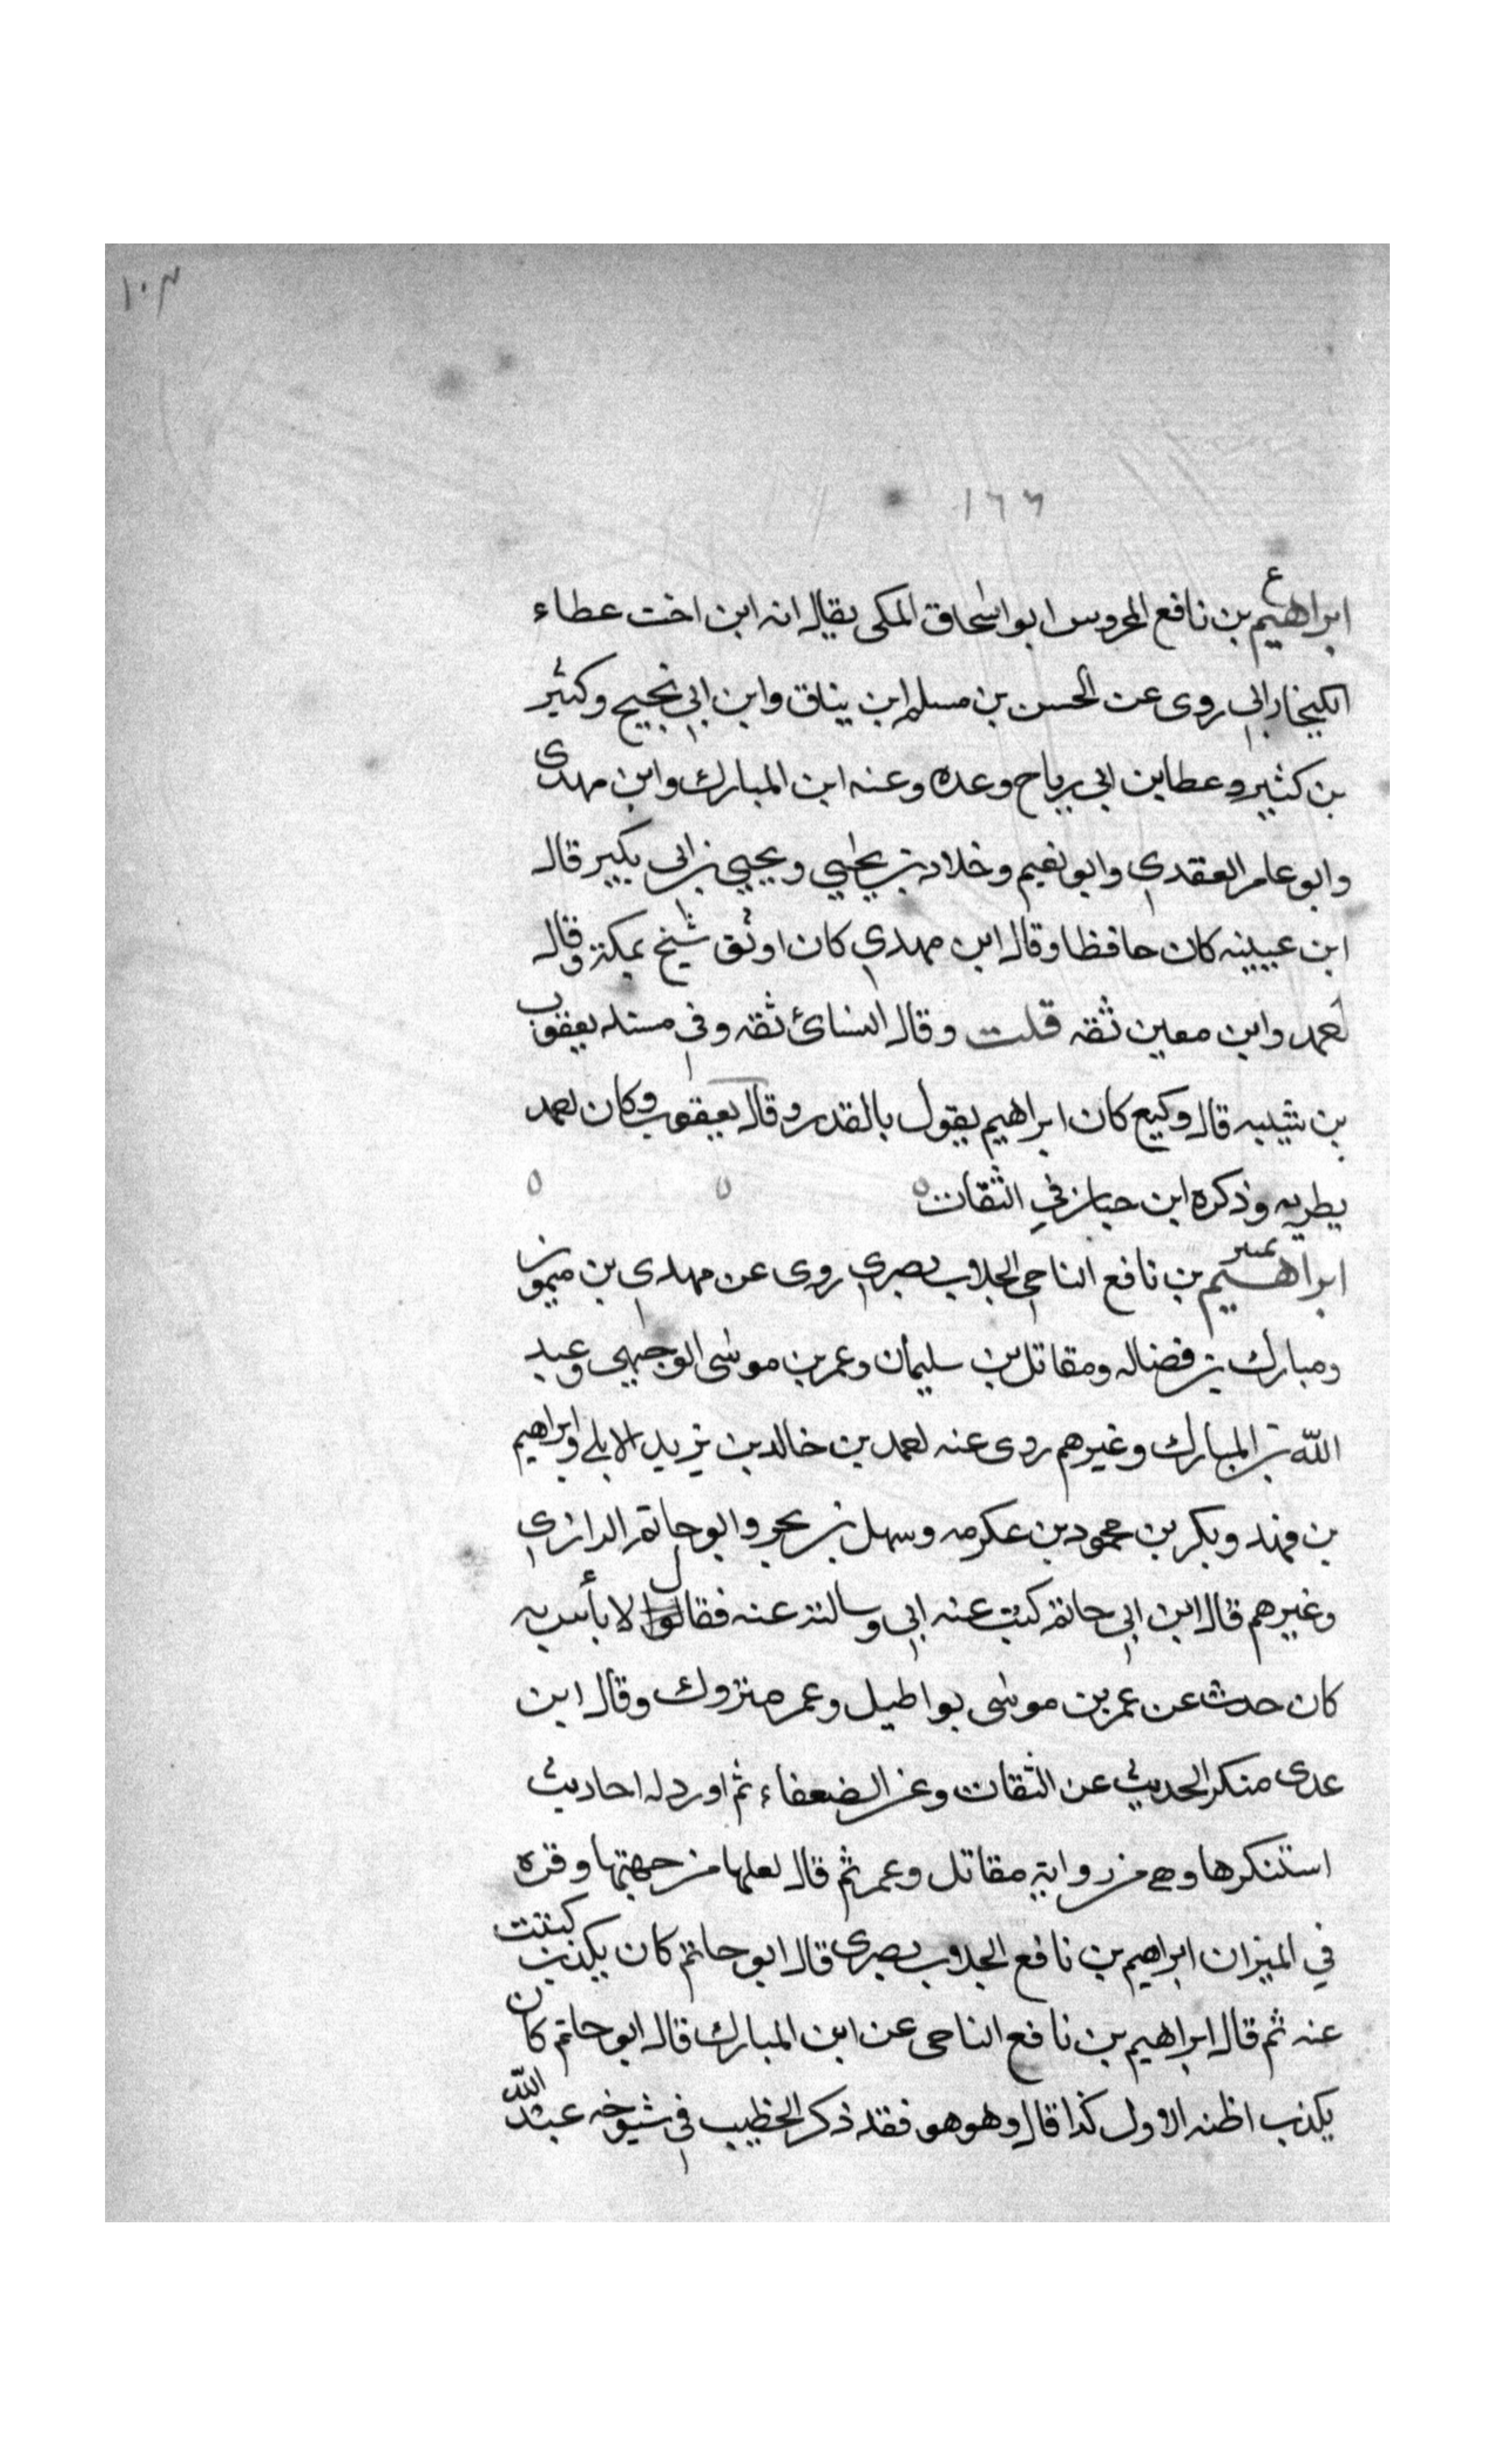 ١٠٣
١٦٦
ع
ابراهيم بن نافع المحروس ابو اسحاق المكى يقال انه ابن اخت عطاء
الكيخارابي روى عن الحسن بن مسلم ابن يناق وابن ابي نجيح وكثير
بن كثير وعطا بن ابي رباح وعده وعنه ابن المبارك وابن مهدى
وابو عامر العقدي وابو نعيم وخلاد بن يحيي ويحيي بن ابى بكير قال
ابن عيينه كان حافظا وقال ابن مهدي كان اوثق شيخ بمكة وقال
احمد وابن معين ثقه قلت وقال النسائ ثقه وفي مسند يعقوب
بن شيبه قال وكيع كان ابراهيم يقول بالقدر وقال يعقوب وكان احمد
يطريه وذكره ابن حبان في الثقات
تمييز
ابراهيم بن نافع الناجي الجلاب بصري روى عن مهدي بن ميمون
ومبارك بن فضاله ومقاتل بن سليمان وعمر بن موسى الوجيهي وعبد
الله بن المبارك وغيرهم روى عنه احمد بن خالد بن يزيد الابلي وابراهيم
بن فهد وبكر بن محمود بن عكرمه وسهل بن بحر وابو حاتم الرازي
وغيرهم قال ابن ابي حاتم كتب عنه ابي وسالته عنه فقال لا بأس به
كان حدث عن عمر بن موسى بواطيل وعمر متروك وقال ابن
عدى منكر الحديث عن الثقات وعن الضعفاء ثم اورد له احاديث
استنكرها وهي من رواية مقاتل وعمر ثم قال لعلها من جهتهما وقره
في الميزان ابراهيم بن نافع الجلاب بصرى قال ابو حاتم كان يكذب كتبت
عنه ثم قال ابراهيم بن نافع الناجى عن ابن المبارك قال ابو حاتم كان
يكذب اظنه الاول كذا قال وهو هو فقد ذكر الخطيب في شيوخه عبد الله